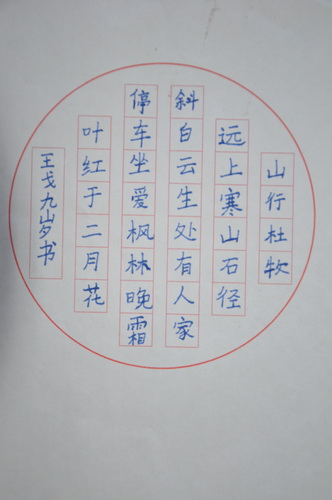 山行杜牧
远上寒山石径
斜白云生处有人家
停车坐爱枫林晚霜
叶红于二月花
王戈九岁书